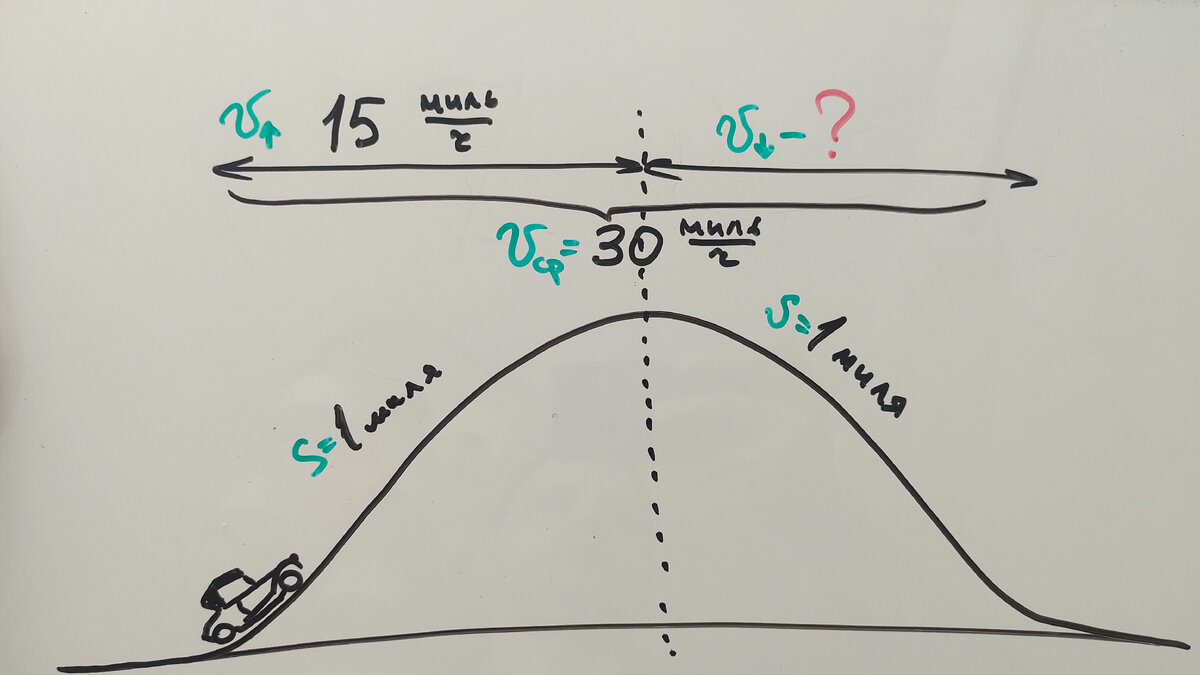 v↑ 15 миль/г
v↓ – ?
vср = 30 миля/г
S=1 миля
S=1 миля